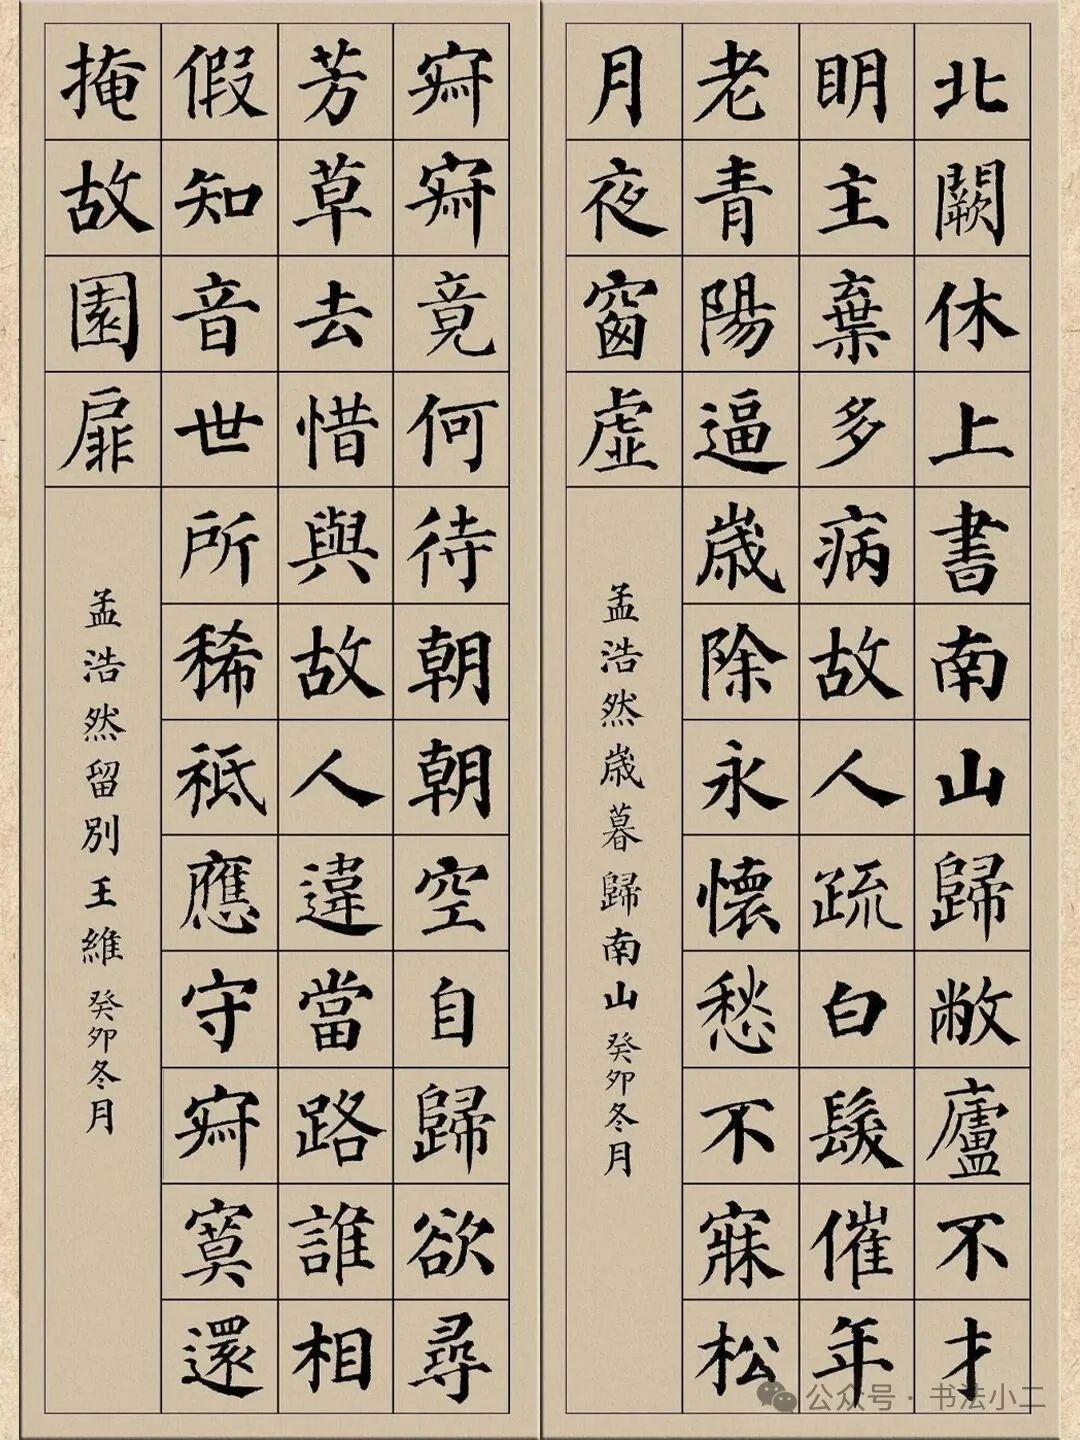 北闕休上書南山歸敝廬不才
明主棄多病故人疏白髮催年
老青陽逼歲除永懷愁不寐松
月夜窗虛
孟浩然歲暮歸南山 癸卯冬月
寂寂竟何待朝朝空自歸欲尋
芳草去惜與故人違當路誰相
假知音世所稀祗應守寂寞還
掩故園扉
孟浩然留別王維 癸卯冬月
公众号·书法小二